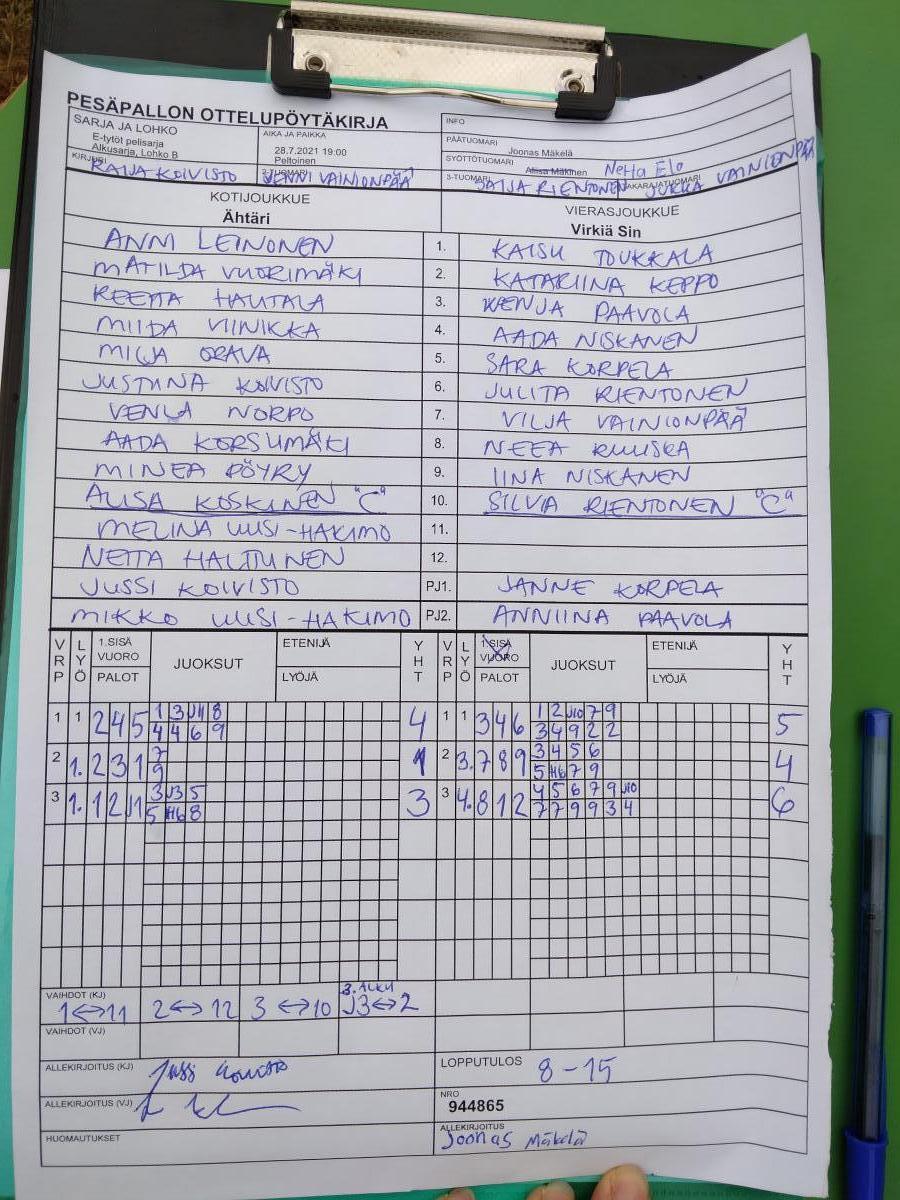 PESÄPALLON OTTELUPÖYTÄKIRJA
SARJA JA LOHKO
E-tytöt pelisarja
Alkusarja, Lohko B
AIKA JA PAIKKA
28.7.2021 19:00
Peltoinen
INFO
PÄÄTUOMARI Joonas Mäkelä
SYÖTTÖTUOMARI Aliisa Mäkinen Netta Elo
KIRJURI RAIJA KOIVISTO 2-TUOMARI JENNI VAINIONPÄÄ 3-TUOMARI SAIJA RIENTONEN TAKARAJATUOMARI JUKKA VAINIONPÄÄ
KOTIJOUKKUE VIERASJOUKKUE
Ähtäri Virkiä Sin
ANNI LEINONEN 1. KAISU TOUKKALA
MATILDA VUORIMÄKI 2. KATARIINA KEPPO
REETTA HAUTALA 3. WENJA PAAVOLA
MIIDA VIINIKKA 4. AADA NISKANEN
MILJA ORAVA 5. SARA KORPELA
JUSTIINA KOIVISTO 6. JULITA RIENTONEN
VENLA NORPO 7. VILJA VAINIONPÄÄ
AADA KORSUMÄKI 8. NEEA RUUSKA
MINEA PÖYRY 9. IINA NISKANEN
ALISA KOSKINEN "C" 10. SILVIA RIENTONEN "C"
MELINA UUSI-HAKIMO 11.
NETTA HALTTUNEN 12.
JUSSI KOIVISTO PJ1. JANNE KORPELA
MIKKO UUSI-HAKIMO PJ2. ANNIINA PAAVOLA
VRP LYÖ 1.SISÄ VUORO PALOT JUOKSUT ETENIJÄ LYÖJÄ YHT VRP LYÖ 1.SISÄ VUORO PALOT JUOKSUT ETENIJÄ LYÖJÄ YHT
1 1 2 4 5 1 3 J11 8 4 1 1 3 4 6 1 2 J10 7 9 5
4 4 6 9 3 4 9 2 2
2 1. 2 3 1 7 1 2 3. 7 8 9 3 4 5 6 4
9 5 H6 7 9
3 1. 1 2 J1 3 J3 5 3 3 4. 8 1 2 4 5 6 7 9 J10 6
5 H6 8 7 7 9 9 3 4
VAIHDOT (KJ) 1↔11 2↔12 3↔10 3. ALKU J3↔2
VAIHDOT (VJ)
ALLEKIRJOITUS (KJ) Jussi Koivisto LOPPUTULOS 8-15
ALLEKIRJOITUS (VJ) NRO 944865
HUOMAUTUKSET ALLEKIRJOITUS Joonas Mäkelä